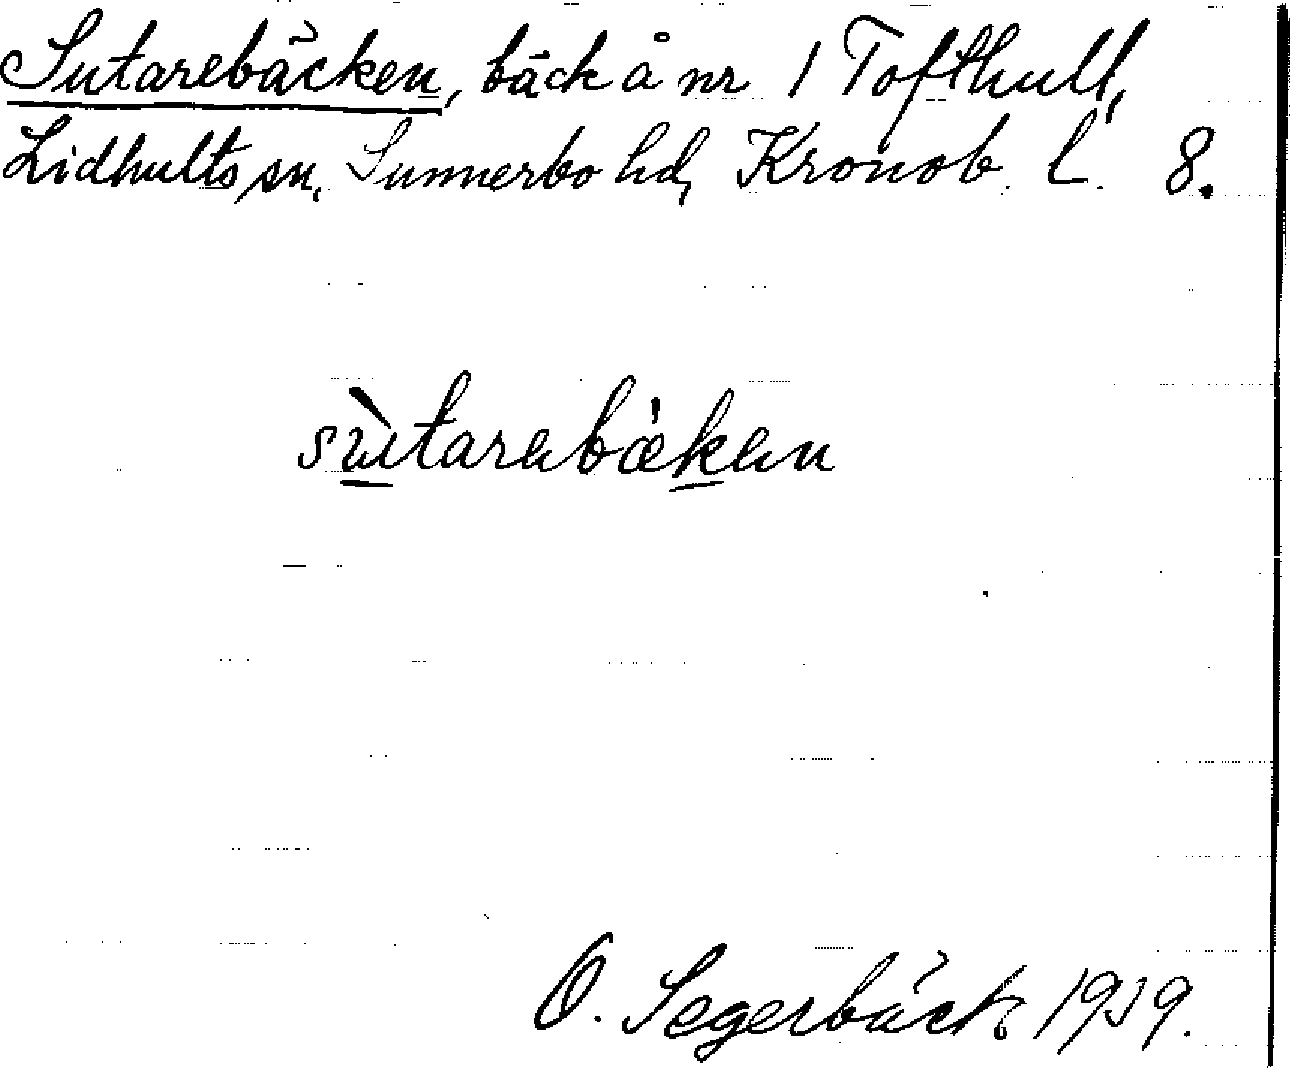 Sutarebäcken, bäck å nr 1 Tofthult,
Lidhults sn, Sunnerbo hd, Kronob. l. 8.
sùtarebæ'ken
O. Segerbäck 1939.